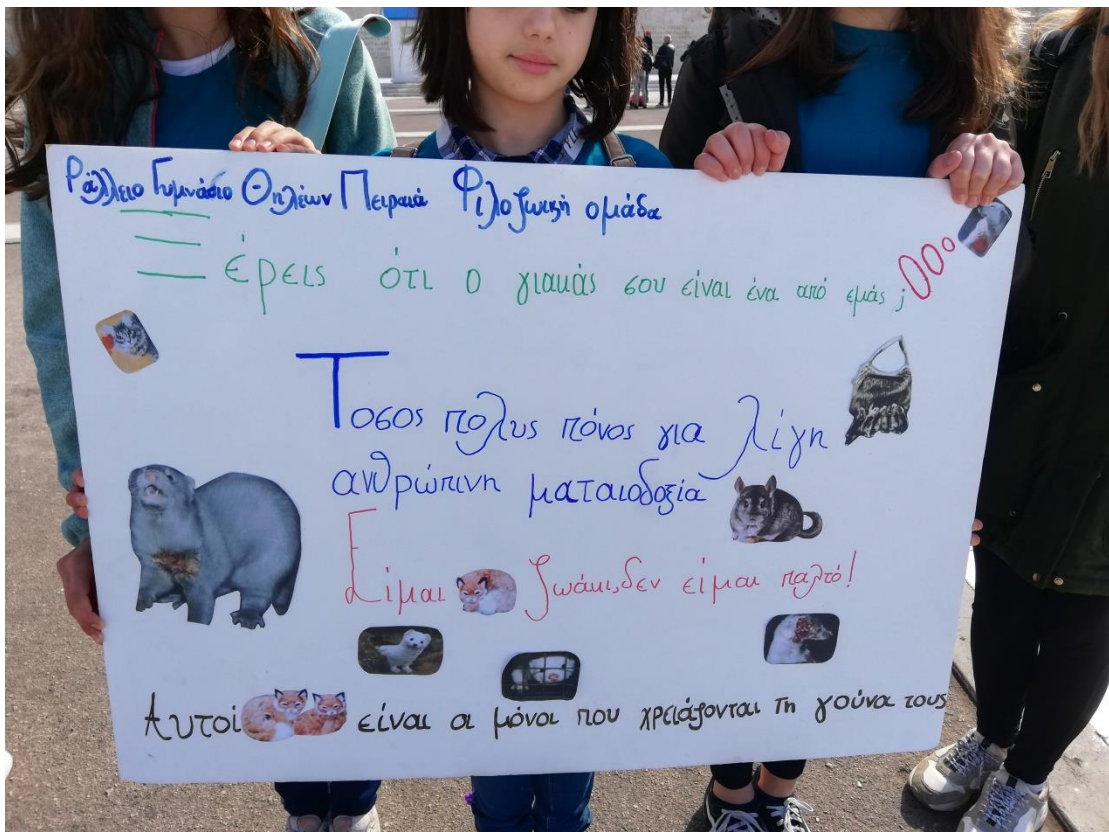 Ράλλειο Γυμνάσιο Θηλέων Πειραιά Φιλοζωική ομάδα
Ξέρεις ότι ο γιακάς σου είναι ένα από εμάς;
Τοσος πολυς πόνος για λίγη
ανθρώπινη ματαιοδοξία
Είμαι ζωάκι, δεν είμαι παλτό!
Αυτοί είναι οι μόνοι που χρειάζονται τη γούνα τους